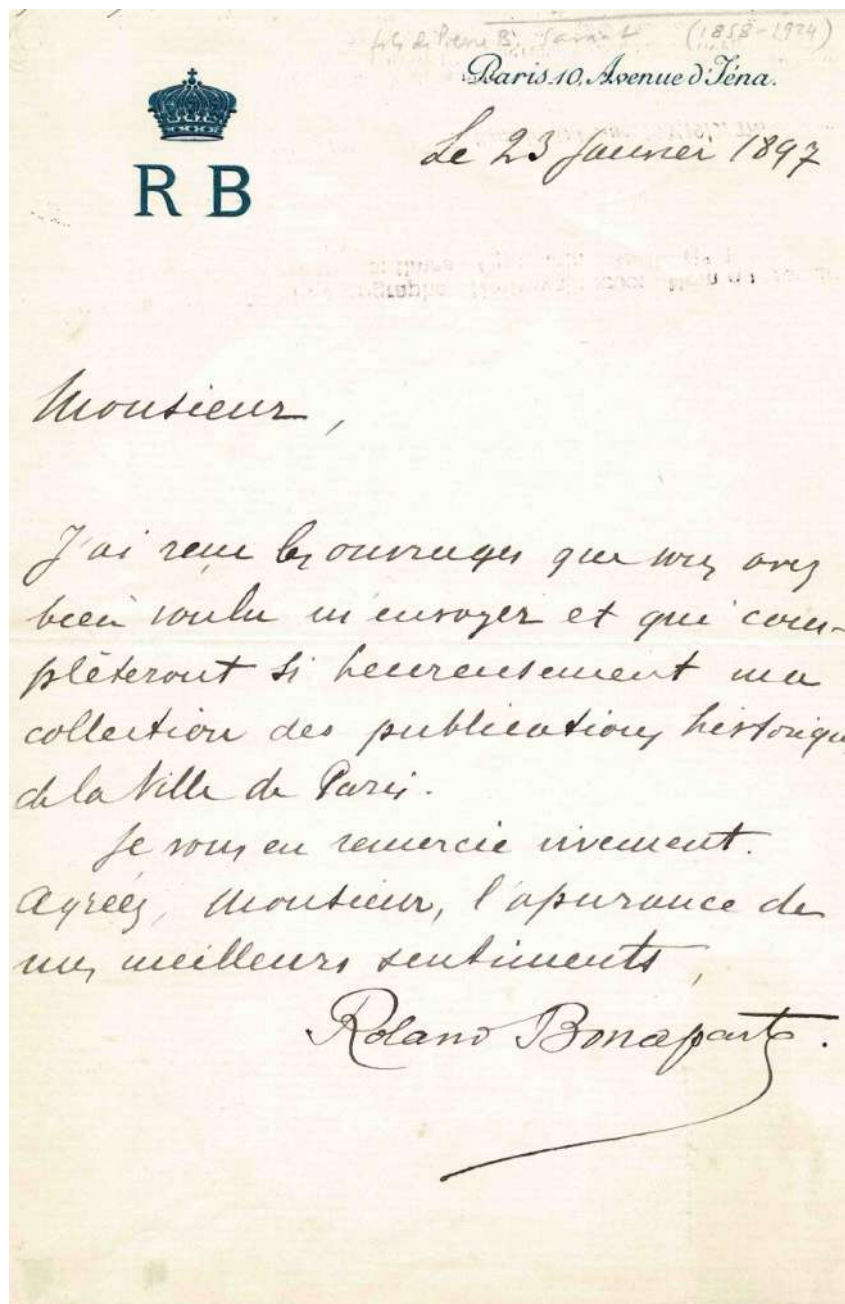 fils de Pierre B. savant (1858-1924)
Paris 10, Avenue d'Iéna.
R B
Le 23 Janvier 1897
Monsieur,
J'ai reçu les ouvrages que vous avez
bien voulu m'envoyer et qui com-
plèteront si heureusement ma
collection des publications historiques
de la Ville de Paris.
Je vous en remercie vivement.
Agréez, Monsieur, l'assurance de
mes meilleurs sentiments,
Roland Bonaparte.